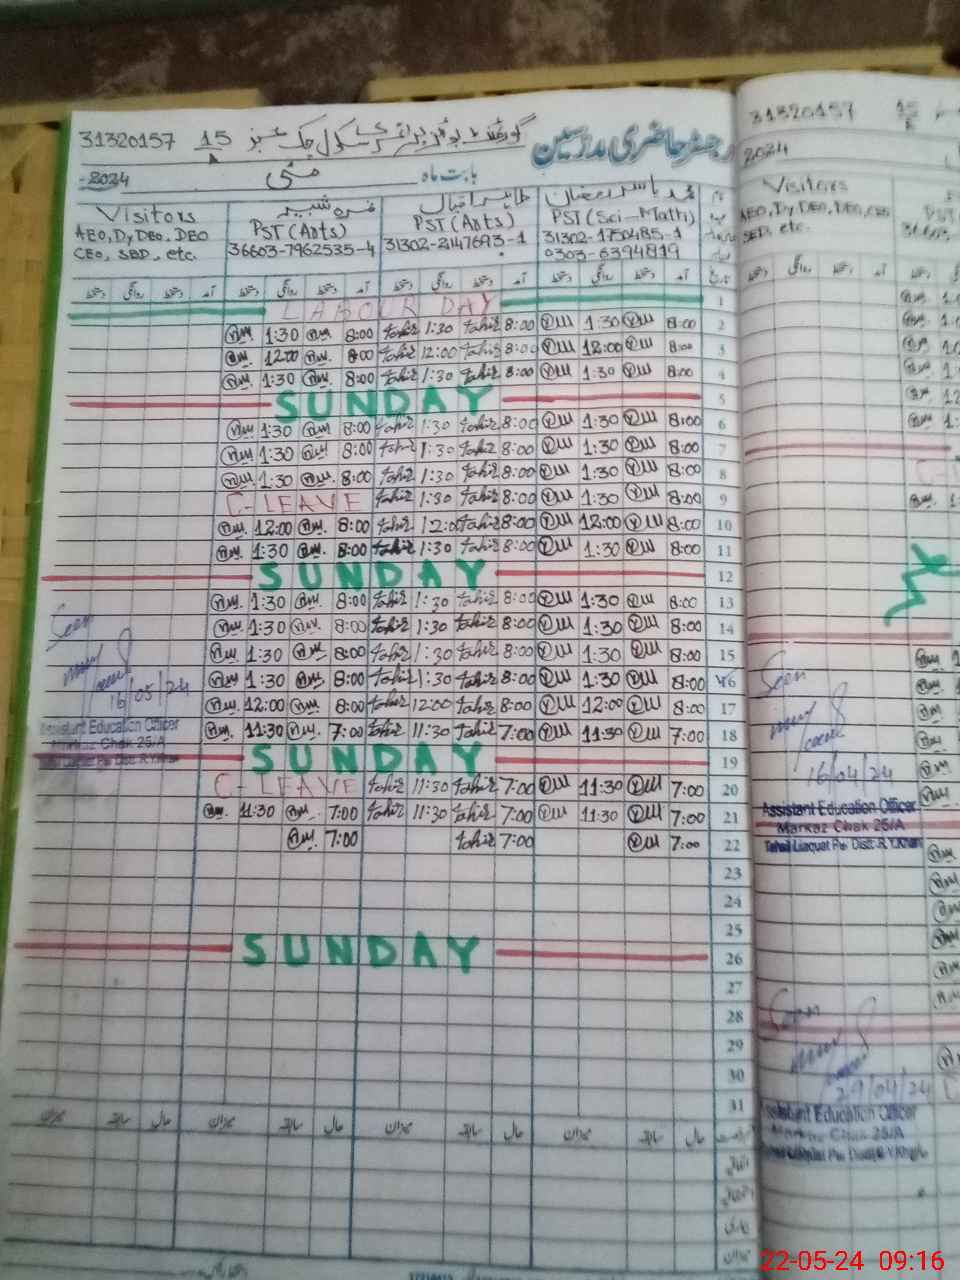 31320157 15 گورنمنٹ بوائز پرائمری سکول چک نمبر
رجسٹر حاضری مدرسین
-2024 مئی بابت ماہ
Visitors
AEO, Dy DEO, DEO
CEO, SED, etc.
شبیر
PST (Arts)
36603-7962535-4
طاہر اقبال
PST (Arts)
31302-2147693-1
محمد یاسر رمضان
PST (Sci-Math)
31302-1750485-1
0303-6394819
LABOUR DAY 1
1:30 8:00 tahir 1:30 tahir 8:00 1:30 8:00 2
12:00 8:00 tahir 12:00 tahir 8:00 12:00 8:00 3
1:30 8:00 tahir 1:30 tahir 8:00 1:30 8:00 4
SUNDAY 5
1:30 8:00 tahir 1:30 tahir 8:00 1:30 8:00 6
1:30 8:00 tahir 1:30 tahir 8:00 1:30 8:00 7
1:30 8:00 tahir 1:30 tahir 8:00 1:30 8:00 8
C-LEAVE tahir 1:30 tahir 8:00 1:30 8:00 9
12:00 8:00 tahir 12:00 tahir 8:00 12:00 8:00 10
1:30 8:00 tahir 1:30 tahir 8:00 1:30 8:00 11
SUNDAY 12
1:30 8:00 tahir 1:30 tahir 8:00 1:30 8:00 13
1:30 8:00 tahir 1:30 tahir 8:00 1:30 8:00 14
1:30 8:00 tahir 1:30 tahir 8:00 1:30 8:00 15
1:30 8:00 tahir 1:30 tahir 8:00 1:30 8:00 16
12:00 8:00 tahir 12:00 tahir 8:00 12:00 8:00 17
11:30 7:00 tahir 11:30 tahir 7:00 11:30 7:00 18
SUNDAY 19
C-LEAVE tahir 11:30 tahir 7:00 11:30 7:00 20
11:30 7:00 tahir 11:30 tahir 7:00 11:30 7:00 21
7:00 tahir 7:00 7:00 22
23
24
25
SUNDAY 26
27
28
29
30
31
Seen
16/05/24
Assistant Education Officer
Markaz Chak 25/A
Tehsil Liaquat Pur Distt: R.Y.Khan
31320157 15
2024
Visitors
AEO, Dy DEO, DEO, CEO
SED, etc.
Seen
16/04/24
Assistant Education Officer
Markaz Chak 25/A
Tehsil Liaquat Pur Distt: R.Y.Khan
Seen
29/04/24
Assistant Education Officer
Markaz Chak 25/A
Tehsil Liaquat Pur Distt: R.Y.Khan
22-05-24 09:16